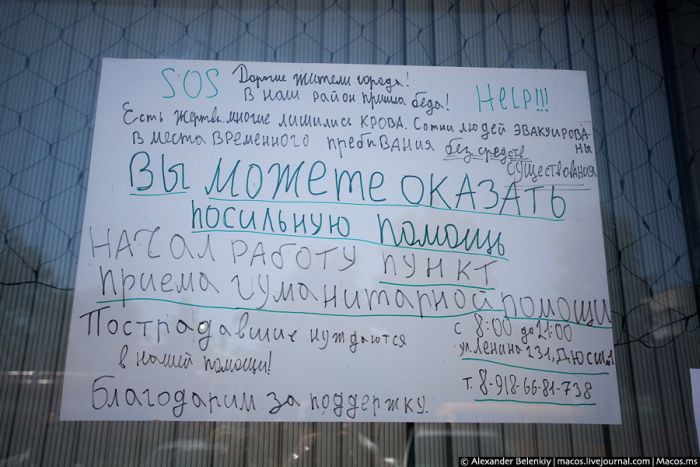 SOS Дорогие жители города! Help!!!
В наш район пришла беда!
Есть жертвы, многие лишились крова. Сотни людей эвакуированы
в места временного пребывания без средств
существования
Вы можете оказать
посильную помощь
Начал работу пункт
приема гуманитарной помощи
Пострадавшие нуждаются
в нашей помощи!
с 8:00 до 21:00
ул Ленина 131, ДЮСШ 1
т. 8-918-66-81-738
Благодарим за поддержку.
© Alexander Belenkiy | macos.livejournal.com | Macos.ms